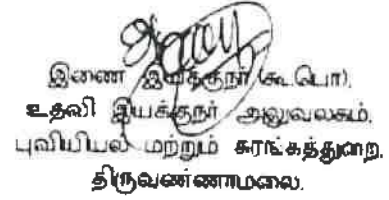 இணை இயக்குநர் (கூ.பொ),
உதவி இயக்குநர் அலுவலகம்,
புவியியல் மற்றும் சுரங்கத்துறை,
திருவண்ணாமலை.